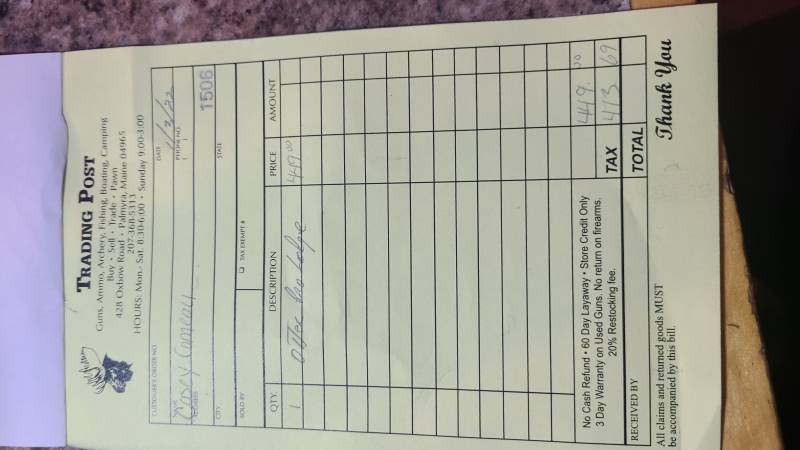 TRADING POST
Guns, Ammo, Archery, Fishing, Boating, Camping
Buy • Sell • Trade • Pawn
428 Oxbow Road • Palmyra, Maine 04965
207-368-5313
HOURS: Mon.- Sat. 8:30-6:00 • Sunday 9:00-3:00
CUSTOMER'S ORDER NO. DATE
NAME Casey Comeau PHONE NO.
ADDRESS ( ) 1506
CITY STATE
SOLD BY TAX EXEMPT #
QTY. DESCRIPTION PRICE AMOUNT
1 Otter Pro Lodge 449 00
No Cash Refund • 60 Day Layaway • Store Credit Only 449 00
3 Day Warranty on Used Guns. No return on firearms.
20% Restocking fee. TAX 473 69
RECEIVED BY TOTAL
All claims and returned goods MUST
be accompanied by this bill. Thank You